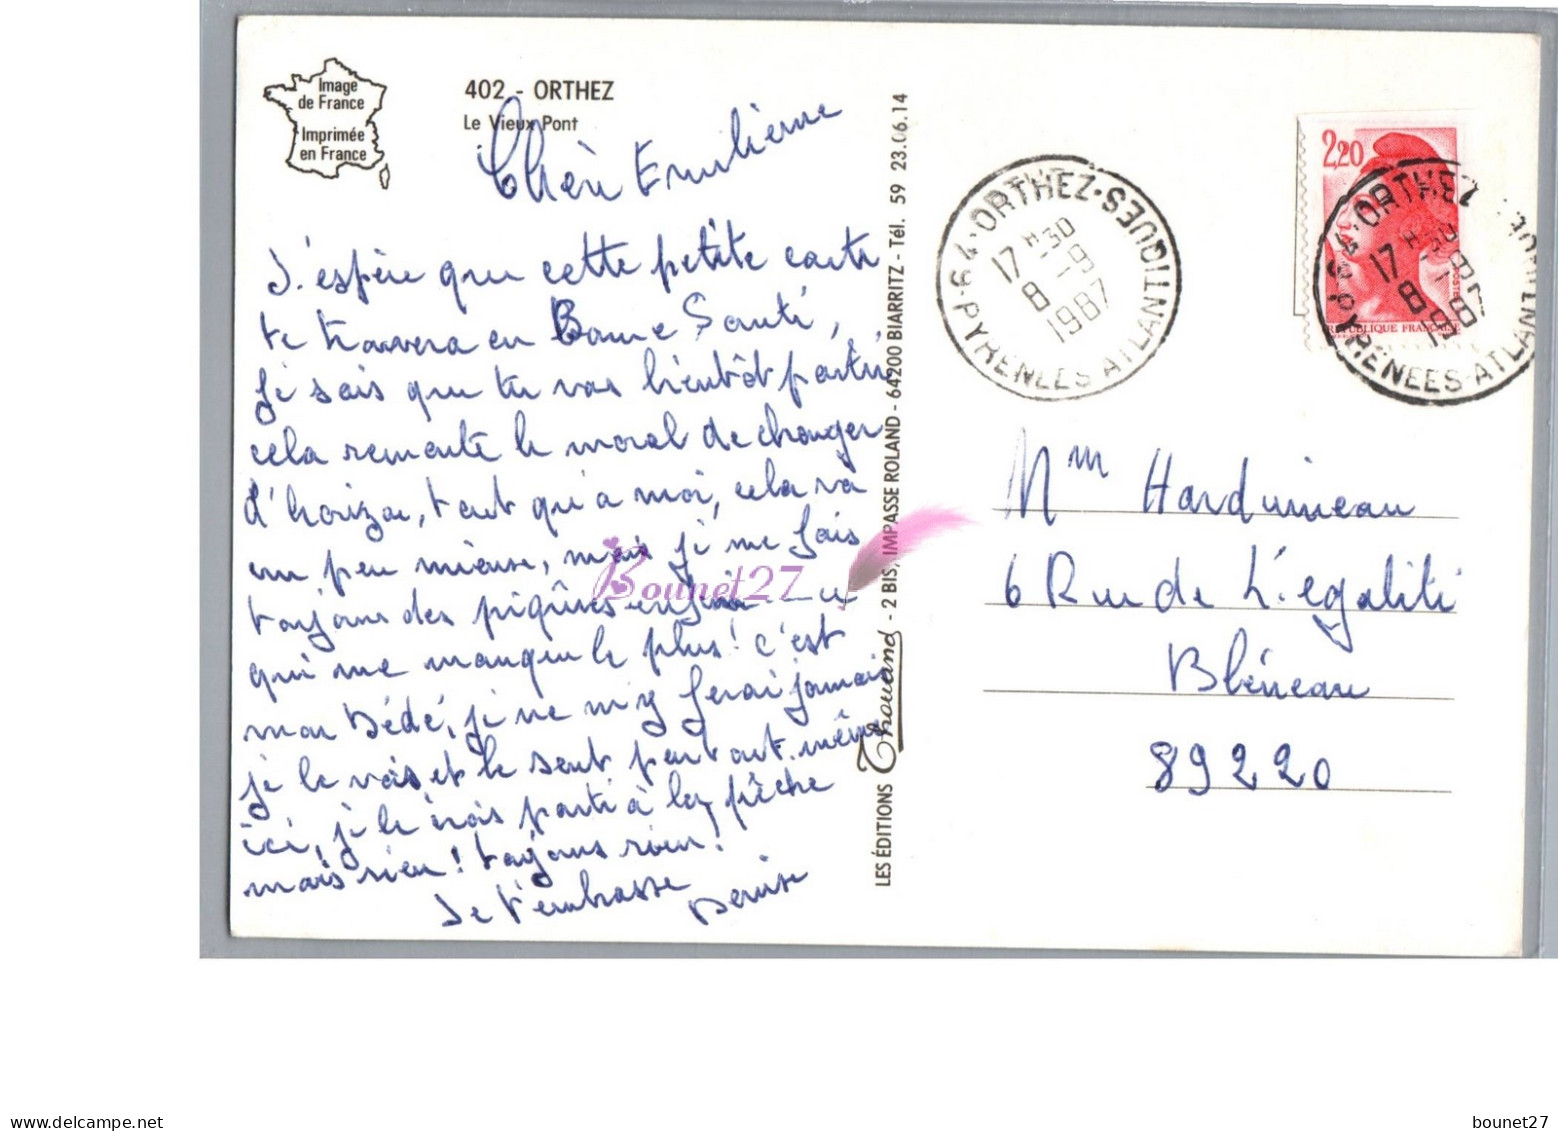 Image
de France
Imprimée
en France
402 - ORTHEZ
Le Vieux Pont
Chère Emilienne
J'espère que cette petite carte
te trouvera en Bonne Santé,
je sais que tu vas bientôt partir,
cela remonte le moral de changer
d'horizon, tant qu'a moi, cela va
un peu mieux, mais je me fais
toujours des piqûres enfin ce
qui me manque le plus! c'est
mon Dédé, je ne m'y ferai jamais
je le vois et le sent partout même
ici, je le crois parti à la pêche
mais rien! toujours rien!
Je t'embrasse
Denise
LES ÉDITIONS Thouand - 2 BIS, IMPASSE ROLAND - 64200 BIARRITZ - Tél. 59 23.06.14
64-ORTHEZ-PYRENEES-ATLANTIQUES
17 H30
8-9
1987
2,20
REPUBLIQUE FRANÇAISE
64-ORTHEZ
PYRENEES-ATLANTIQUE
17 H30
8-9
1987
Mme Harduineau
6 Rue de L'égalité
Bléneau
89220
Bounet27
delcampe.net
bounet27